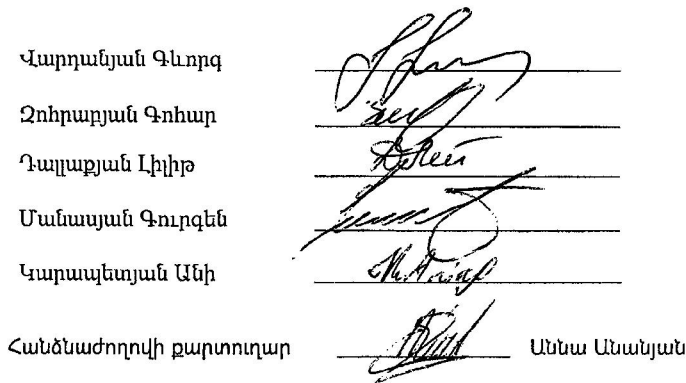 Վարդանյան Գևորգ
Զոհրաբյան Գոհար
Դալլաքյան Լիլիթ
Մանասյան Գուրգեն
Կարապետյան Անի
Հանձնաժողովի քարտուղար Աննա Անանյան